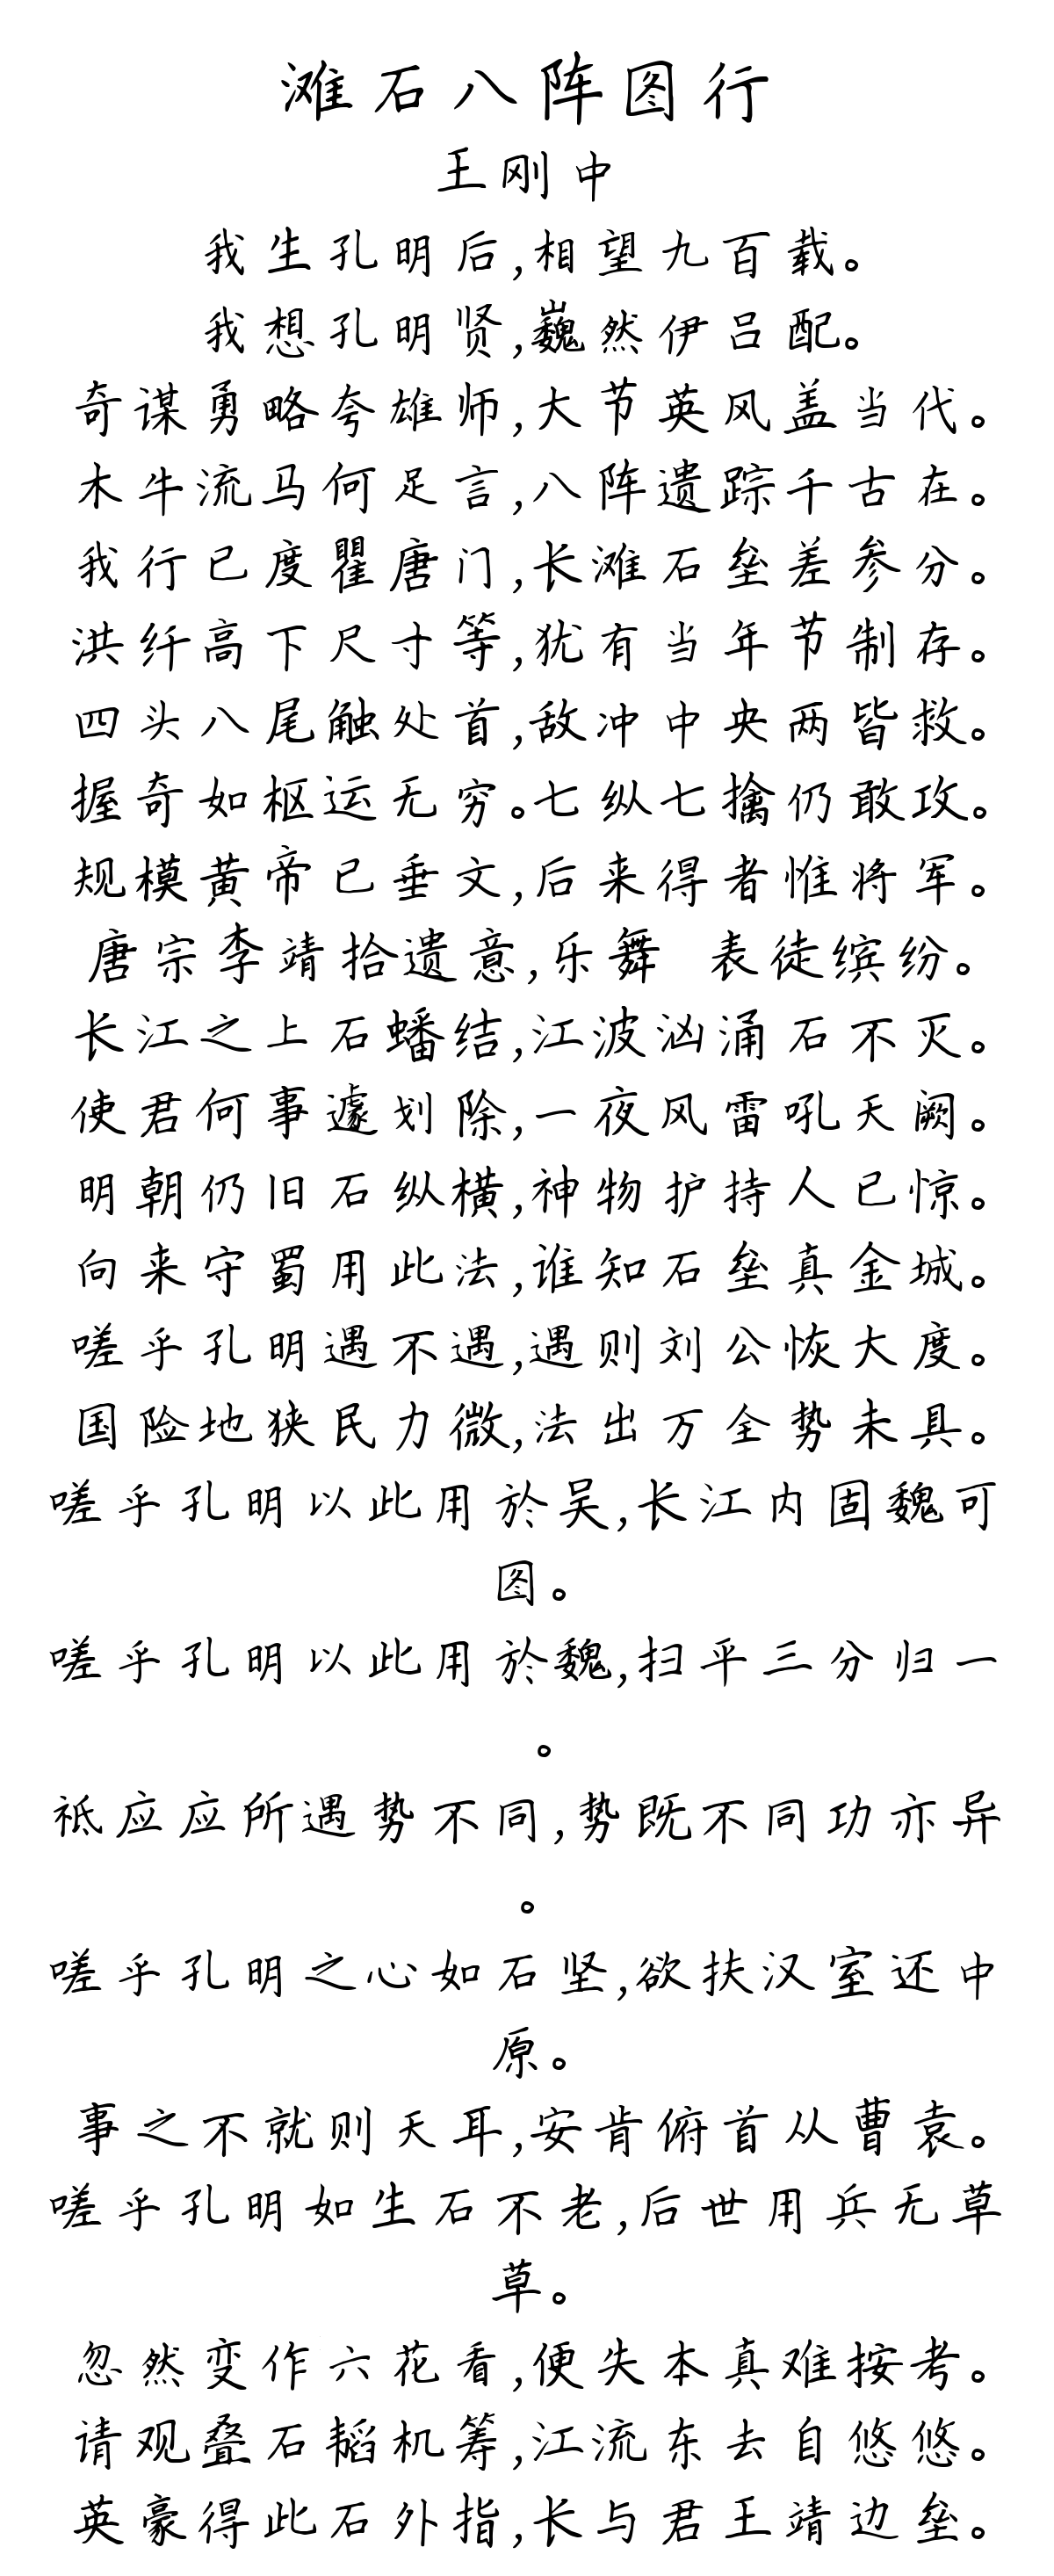 滩石八阵图行
王刚中
我生孔明后,相望九百载。
我想孔明贤,巍然伊吕配。
奇谋勇略夸雄师,大节英风盖当代。
木牛流马何足言,八阵遗踪千古在。
我行已度瞿唐门,长滩石垒差参分。
洪纤高下尺寸等,犹有当年节制存。
四头八尾触处首,敌冲中央两皆救。
握奇如枢运无穷。七纵七擒仍敢攻。
规模黄帝已垂文,后来得者惟将军。
唐宗李靖拾遗意,乐舞 表徒缤纷。
长江之上石蟠结,江波汹涌石不灭。
使君何事遽划除,一夜风雷吼天阙。
明朝仍旧石纵横,神物护持人已惊。
向来守蜀用此法,谁知石垒真金城。
嗟乎孔明遇不遇,遇则刘公恢大度。
国险地狭民力微,法出万全势未具。
嗟乎孔明以此用於吴,长江内固魏可
图。
嗟乎孔明以此用於魏,扫平三分归一
。
祗应应所遇势不同,势既不同功亦异
。
嗟乎孔明之心如石坚,欲扶汉室还中
原。
事之不就则天耳,安肯俯首从曹袁。
嗟乎孔明如生石不老,后世用兵无草
草。
忽然变作六花看,便失本真难按考。
请观叠石韬机筹,江流东去自悠悠。
英豪得此石外指,长与君王靖边垒。